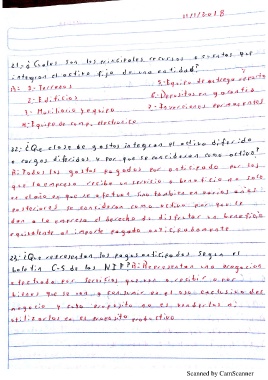 11/1/2018
21.- ¿Cuales son los principales recursos o cuentas que
integran el activo fijo de una entidad?
R: 1- Terrenos 5- Equipo de entrega o reparto
2- Edificios 6- Depositos en garantia
3- Mobiliario y equipo 7- Inversiones permanentes
4- Equipo de comp. electronico
22.- ¿Que clase de gastos integran el activo diferido
o cargos diferidos y por que se consideran como activo?
R: Todos los gastos pagados por anticipado por los
que la empresa recibe un servicio o beneficio no solo
en el año en que se efectua sino tambien en varios años
posteriores se consideran como activo por que le
dan a la empresa el derecho de disfrutar un beneficio
equivalente al importe pagado anticipadamente
23.- ¿Que representan los pagos anticipados segun el
boletin C-5 de las NIF? R: Representan una erogacion
efectuada por servicios que van a recibir o por
bienes que se van a consumir en el uso exclusivo del
negocio y cuyo proposito no es venderlos ni
utilizarlos en el proposito productivo
Scanned by CamScanner